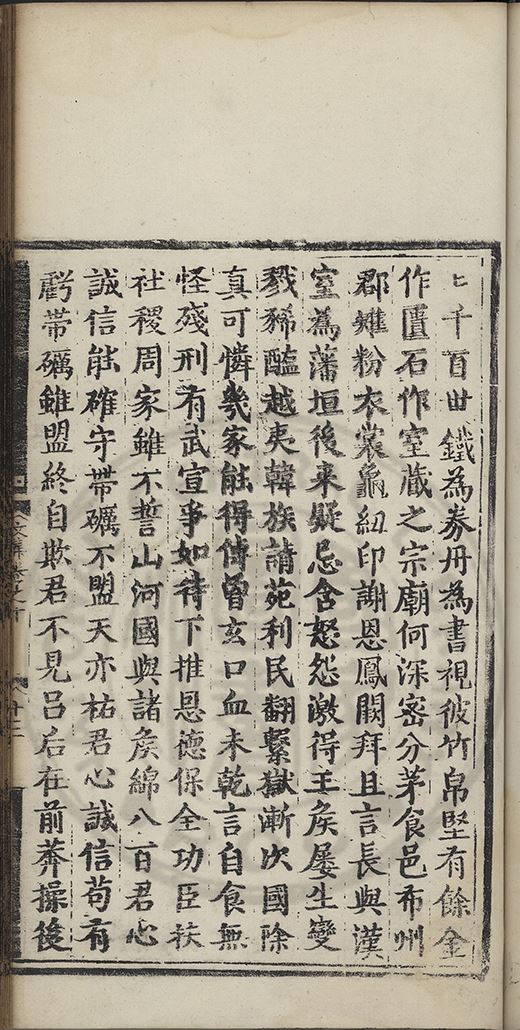 千百世鐵為券丹為書視彼竹帛堅有餘金
作匱石作室藏之宗廟何深密分茅食邑布州
郡雉粉衣裳龜紐印謝恩鳳闕拜且言長與漢
室為藩垣後来疑忌含怒怨激得王矦屢生變
戮豨醢越夷韓族請苑利民翻繫獄漸次國除
真可憐幾家能得傳曾玄口血未乾言自食無
怪殘刑有武宣爭如待下推恩德保全功臣扶
社稷周家雖不誓山河國與諸矦綿八百君心
誠信能確守帶礪不盟天亦祐君心誠信苟有
虧帶礪雖盟終自欺君不見呂后在前莽操後